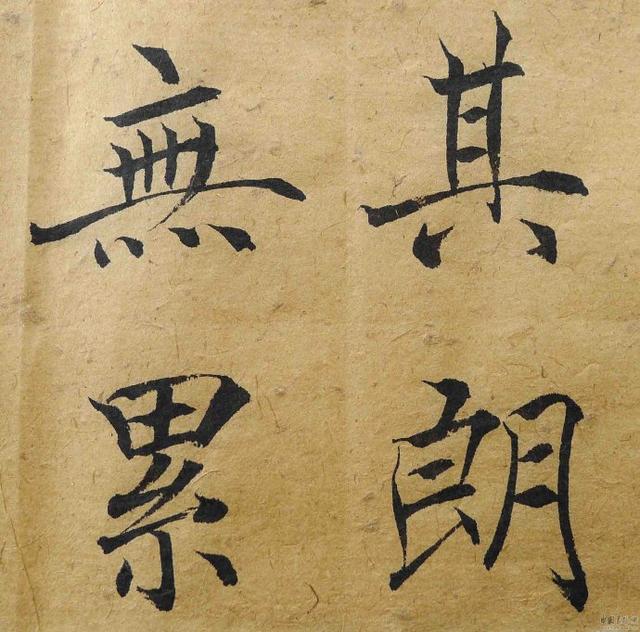 其朗
無累